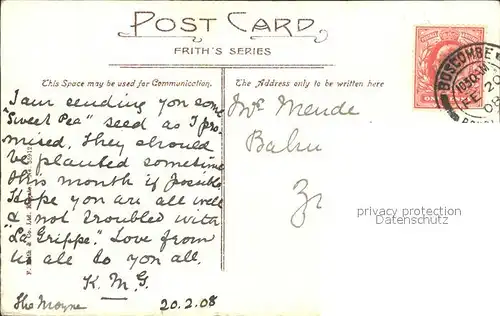 POST CARD
FRITH'S SERIES
This Space may be used for Communication.
The Address only to be written here
I am sending you some
"Sweet Pea" seed as I pro-
mised, they should
be planted sometime
this month if possible
Hope you are all well
& not troubled with
"La Grippe." Love from
us all to you all.
K. M. G.
The Moyne
20.2.08
Mende
BOSCOMBE
1030AM
FE 2
privacy protection
Datenschutz